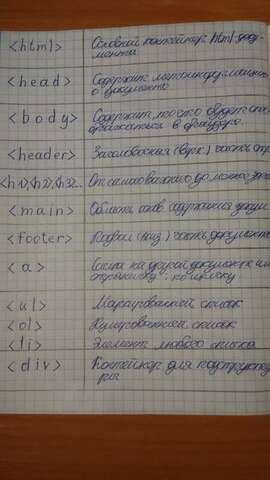 <html> Основной контейнер html доку-
мента
<head> Содержит метаинформацию
о документе
<body> Содержит то, что будет ото-
бражаться в браузере.
<header> Заголовочная (верх) часть стр
<h1>,<h2>,<h3>... От самого важного до менее
<main> Область содержания докум
<footer> Подвал (низ) часть документа
<a> Ссылка на другой документ или
<ul> Маркированный список
<ol> Нумерованный список
<li> Элемент любого списка
<div> Контейнер для подструкту
ры